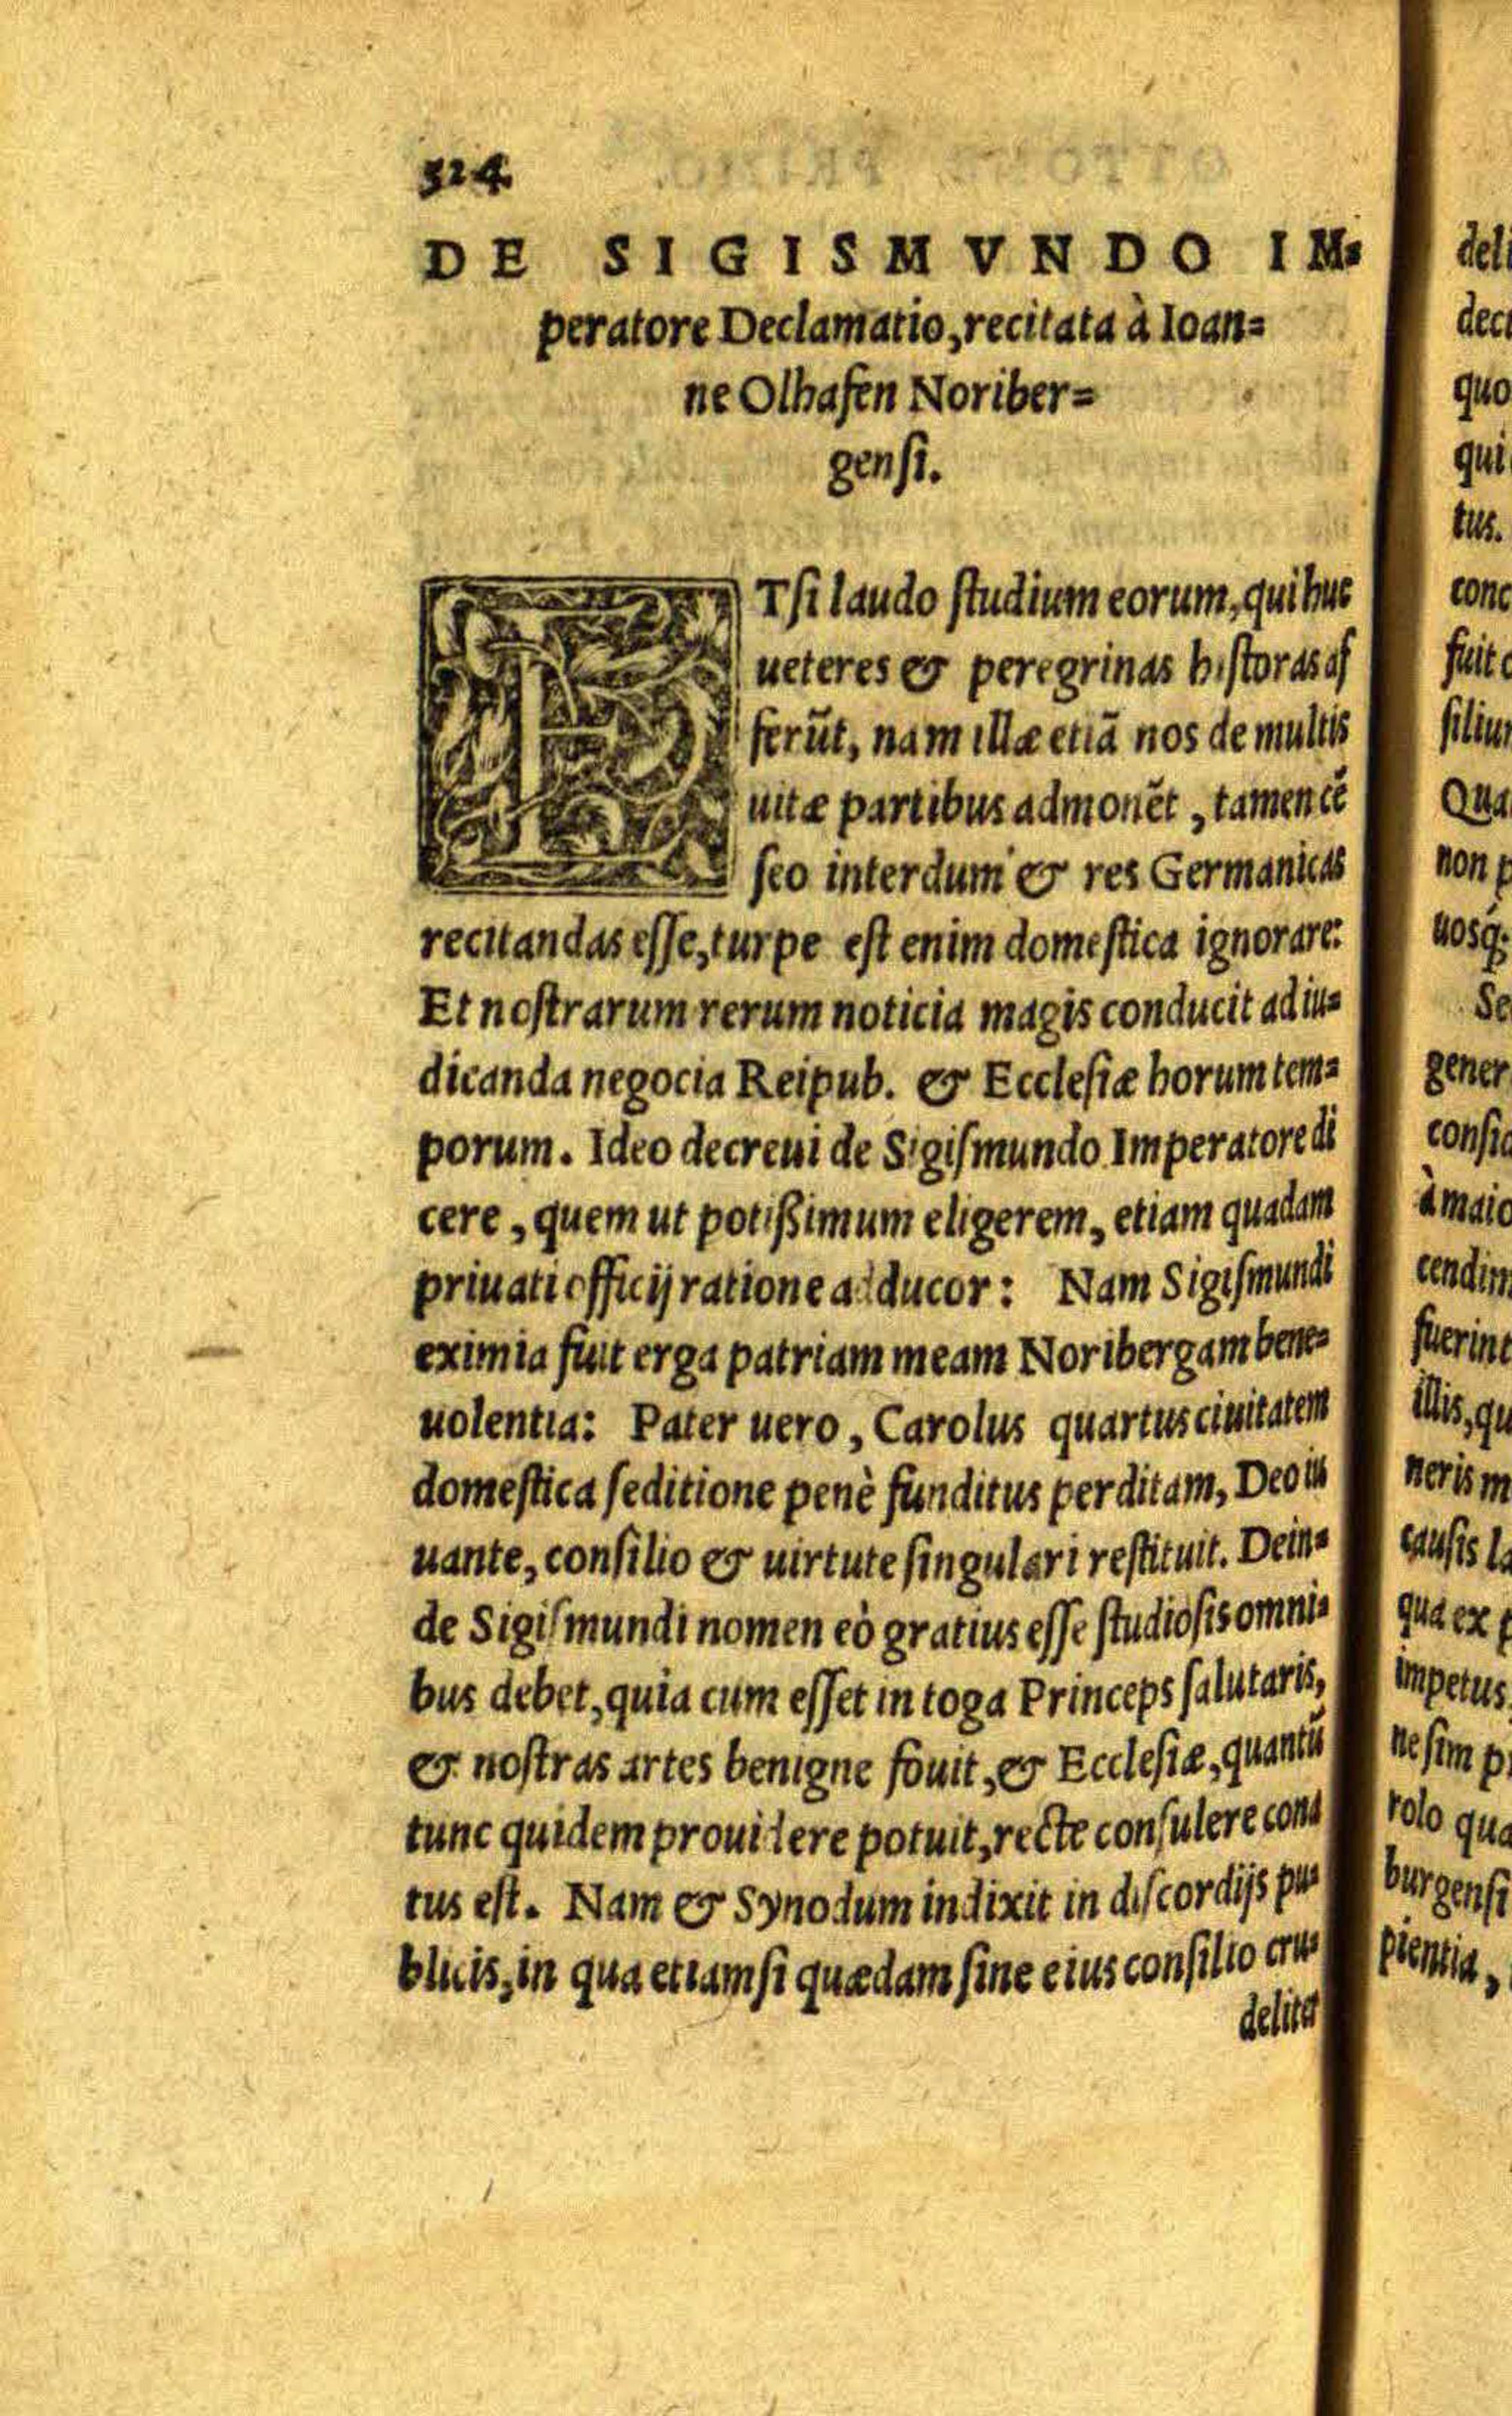 324
DE SIGISMVNDO IM=
peratore Declamatio, recitata à Ioan=
ne Olhafen Noriber=
gensi.
ETsi laudo studium eorum, qui huc
ueteres & peregrinas historas af
ferūt, nam illæ etiā nos de multis
uitæ partibus admonēt, tamen cē
seo interdum & res Germanicas
recitandas esse, turpe est enim domestica ignorare:
Et nostrarum rerum noticia magis conducit ad iu=
dicanda negocia Reipub. & Ecclesiæ horum tem=
porum. Ideo decreui de Sigismundo Imperatore di
cere, quem ut potißimum eligerem, etiam quadam
priuati officij ratione adducor: Nam Sigismundi
eximia fuit erga patriam meam Noribergam bene=
uolentia: Pater uero, Carolus quartus ciuitatem
domestica seditione penè funditus perditam, Deo iu
uante, consilio & uirtute singulari restituit. Dein=
de Sigismundi nomen eò gratius esse studiosis omni=
bus debet, quia cum esset in toga Princeps salutaris,
& nostras artes benigne fouit, & Ecclesiæ, quantū
tunc quidem prouidere potuit, recte consulere cona
tus est. Nam & Synodum indixit in discordijs pu=
blicis, in qua etiamsi quædam sine eius consilio cru=
deliter
deli
quo
qui
tus.
conc
non p
Se
gener
à maio
cendim
fuerint
illis, qu
neris m
causis la
qua ex p
impetus
ne sim p
rolo qua
burgensi
pientia,